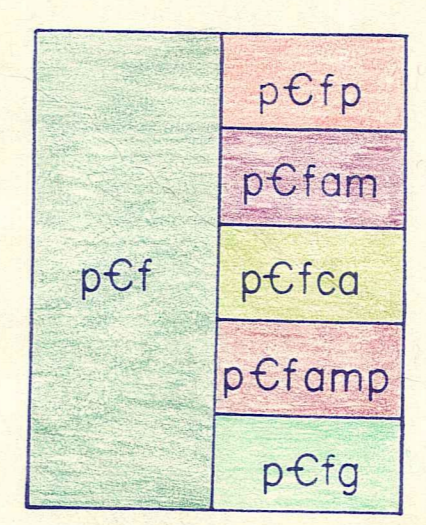 p€f
p€fp
p€fam
p€fca
p€famp
p€fg